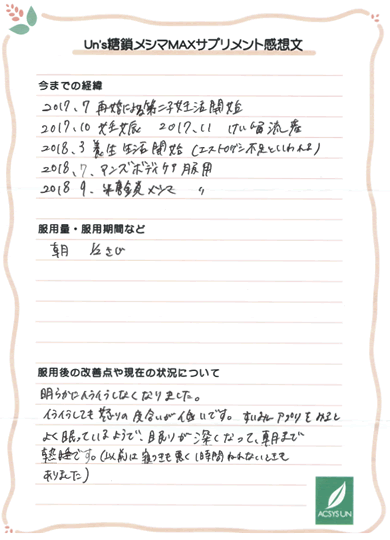 Un's糖鎖メシマMAXサプリメント感想文
今までの経緯
2017.7 再婚による第二子妊活開始
2017.10 妊娠 2017.11 けい留流産
2018.3 養生生活開始(エストロゲン不足といわれる)
2018.7. マンズボディケア服用
2018 9. 糖鎖メシマ 〃
服用量・服用期間など
朝 1/2さじ
服用後の改善点や現在の状況について
明らかにイライラしなくなりました。
イライラしても怒りの度合いが低いです。すいみんアプリを見ると
よく眠っているようで、眠りが深くなって、朝まで
熟睡です。(以前は寝つきも悪く1時間ねれないときも
ありました)
ACSYSUN